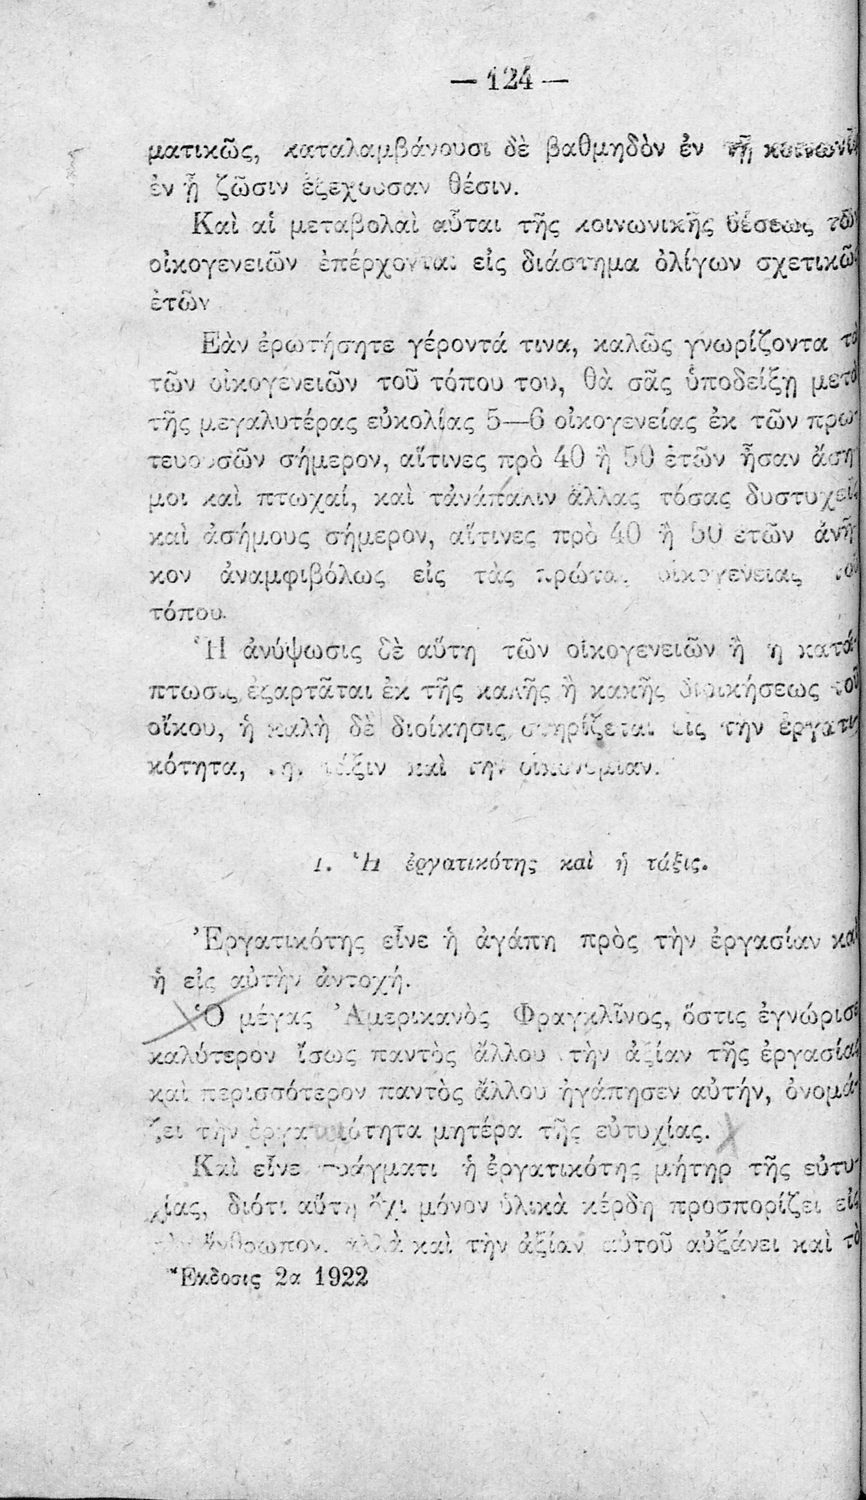 — 124 —
ματικῶς, καταλαμβάνουσι δὲ βαθμηδὸν ἐν τῇ κοινωνίᾳ
ἐν ᾗ ζῶσιν ἐξέχουσαν θέσιν.
Καὶ αἱ μεταβολαὶ αὗται τῆς κοινωνικῆς θέσεως τῶν
οἰκογενειῶν ἐπέρχονται εἰς διάστημα ὀλίγων σχετικῶς
ἐτῶν
Ἐὰν ἐρωτήσητε γέροντά τινα, καλῶς γνωρίζοντα τὰ
τῶν οἰκογενειῶν τοῦ τόπου του, θὰ σᾶς ὑποδείξῃ μετὰ
τῆς μεγαλυτέρας εὐκολίας 5—6 οἰκογενείας ἐκ τῶν πρω-
τευουσῶν σήμερον, αἵτινες πρὸ 40 ἢ 50 ἐτῶν ἦσαν ἄση-
μοι καὶ πτωχαί, καὶ τἀνάπαλιν ἄλλας τόσας δυστυχεῖς
καὶ ἀσήμους σήμερον, αἵτινες πρὸ 40 ἢ 50 ετῶν ἀνῆ-
κον ἀναμφιβόλως εἰς τὰς πρώτας οἰκογενείας τοῦ
τόπου.
Ἡ ἀνύψωσις δὲ αὕτη τῶν οἰκογενειῶν ἢ η κατά-
πτωσις ἐξαρτᾶται ἐκ τῆς καλῆς ἢ κακῆς διοικήσεως τοῦ
οἴκου, ἡ καλὴ δὲ διοίκησις στηρίζεται εἰς τὴν ἐργατι-
κότητα, τὴν τάξιν καὶ τὴν οἰκονομίαν.
1. Ἡ ἐργατικότης καὶ ἡ τάξις.
Ἐργατικότης εἶνε ἡ ἀγάπη πρὸς τὴν ἐργασίαν καὶ
ἡ εἰς αὐτὴν ἀντοχή.
Ὁ μέγας Ἀμερικανὸς Φραγκλῖνος, ὅστις ἐγνώρισε
καλύτερον ἴσως παντὸς ἄλλου τὴν ἀξίαν τῆς ἐργασίας
καὶ περισσότερον παντὸς ἄλλου ἠγάπησεν αὐτήν, ὀνομά-
ζει τὴν ἐργατικότητα μητέρα τῆς εὐτυχίας.
Καὶ εἶνε πράγματι ἡ ἐργατικότης μήτηρ τῆς εὐτυ-
χίας, διότι αὕτη ὄχι μόνον ὑλικὰ κέρδη προσπορίζει εἰς
τὸν ἄνθρωπον, ἀλλὰ καὶ τὴν ἀξίαν αὐτοῦ αὐξάνει καὶ τὸ
Ἔκδοσις 2α 1922